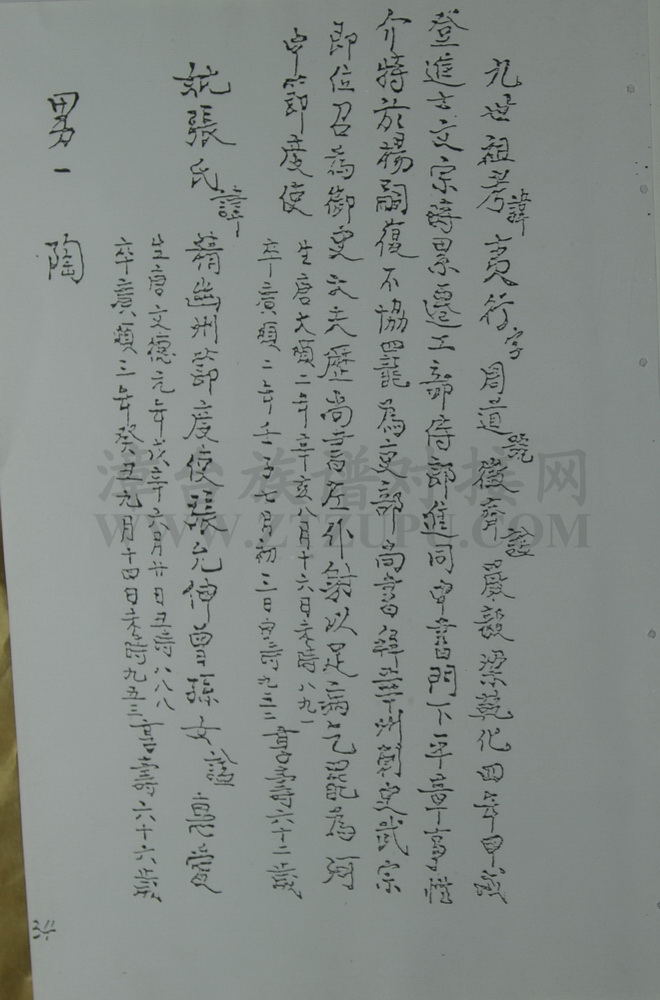 九世祖考諱夷行字周道號徵齊諡晏毅梁乾化四年甲戌
登進士文宗時累遷工部侍郎進同中書門下平章事性
介特於楊嗣復不協罷為吏部尚書華州刺史武宗
即位召為御史大夫歷尚書左仆射以足病乞罷為河
中節度使
生唐大順二年辛亥八月十六日未時八九一
卒廣順二年壬子七月初三日寅時九五二享壽六十二歲
妣張氏諱蕕幽州節度使張允伸曾孫女諡惠愛
生唐文德元年戊辛六月廿日丑時八八八
卒廣順三年癸丑九月十四日未時九五三享壽六十六歲
男一 陶
34
漳台族谱对接网
WWW.ZTZUPU.COM